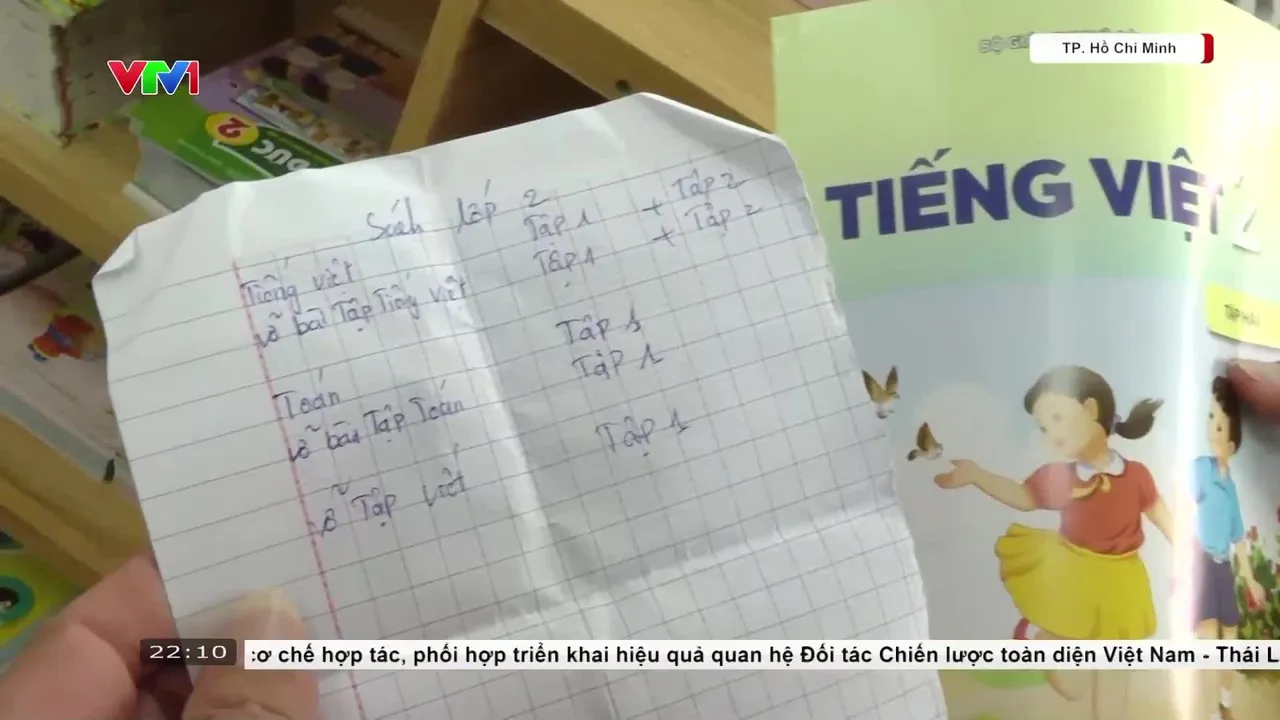 VTV1
TP. Hồ Chí Minh
2
TIẾNG VIỆT 2
TẬP HAI
Sách lớp 2
Tiếng việt Tập 1 + Tập 2
vở bài Tập Tiếng việt Tập 1 + Tập 2
Toán Tập 1
vở bài Tập Toán Tập 1
vở Tập viết Tập 1
22:10
cơ chế hợp tác, phối hợp triển khai hiệu quả quan hệ Đối tác Chiến lược toàn diện Việt Nam - Thái L